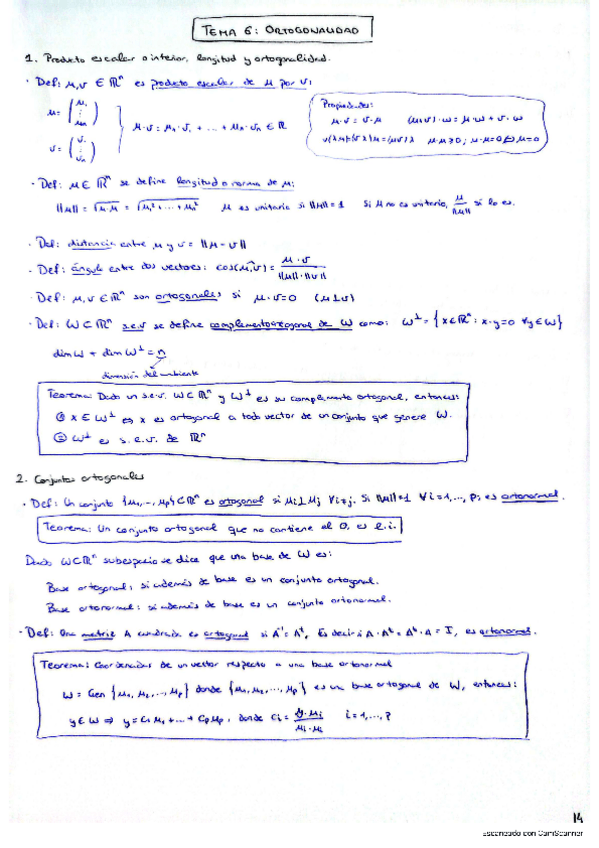 TEMA 6: ORTOGONALIDAD
1. Producto escalar o interior, longitud y ortogonalidad.
· Def: u,v ∈ ℝⁿ es producto escalar de u por v:
u = (u₁ ⋮ uₙ)
v = (v₁ ⋮ vₙ)
u·v = u₁·v₁ + ... + uₙ·vₙ ∈ ℝ
Propiedades:
u·v = v·u (u+v)·w = u·w + v·w
u·u ≥ 0; u·u=0 ⇔ u=0
· Def: u ∈ ℝⁿ se define longitud o norma de u:
||u|| = √u·u = √u₁² + ... + uₙ² u es unitario si ||u||=1 Si u no es unitario, u/||u|| si lo es.
· Def: distancia entre u y v = ||u - v||
· Def: ángulo entre dos vectores: cos(u,v) = u·v / ||u||·||v||
· Def: u,v ∈ ℝⁿ son ortogonales si u·v=0 (u⊥v)
· Def: W⊂ℝⁿ s.e.v se define complemento ortogonal de W como: W^⊥ = {x∈ℝⁿ: x·y=0 ∀y∈W}
dim W + dim W^⊥ = n
dimensión del ambiente
Teorema: Dado un s.e.v. W⊂ℝⁿ y W^⊥ es su complemento ortogonal, entonces:
① x ∈ W^⊥ ⇔ x es ortogonal a todo vector de un conjunto que genere W.
② W^⊥ es s.e.v. de ℝⁿ
2. Conjuntos ortogonales
· Def: Un conjunto {u₁,...,uₚ}⊂ℝⁿ es ortogonal si uᵢ⊥uⱼ ∀i≠j. Si ||uᵢ||=1 ∀i=1,...,p, es ortonormal.
Teorema: Un conjunto ortogonal que no contiene al 0, es l.i.
Dado W⊂ℝⁿ subespacio se dice que una base de W es:
Base ortogonal: si además de base es un conjunto ortogonal.
Base ortonormal: si además de base es un conjunto ortonormal.
· Def: Una matriz A cuadrada es ortogonal si A⁻¹=Aᵗ, Es decir si A·Aᵗ=Aᵗ·A=I, es ortonormal.
Teorema: Coordenadas de un vector respecto a una base ortonormal
W = Gen {u₁,u₂,...,uₚ} donde {u₁,u₂,...,uₚ} es una base ortogonal de W, entonces:
y∈W ⇒ y=c₁u₁+...+cₚuₚ, donde cᵢ = y·uᵢ / uᵢ·uᵢ i=1,...,p
14
Escaneado con CamScanner